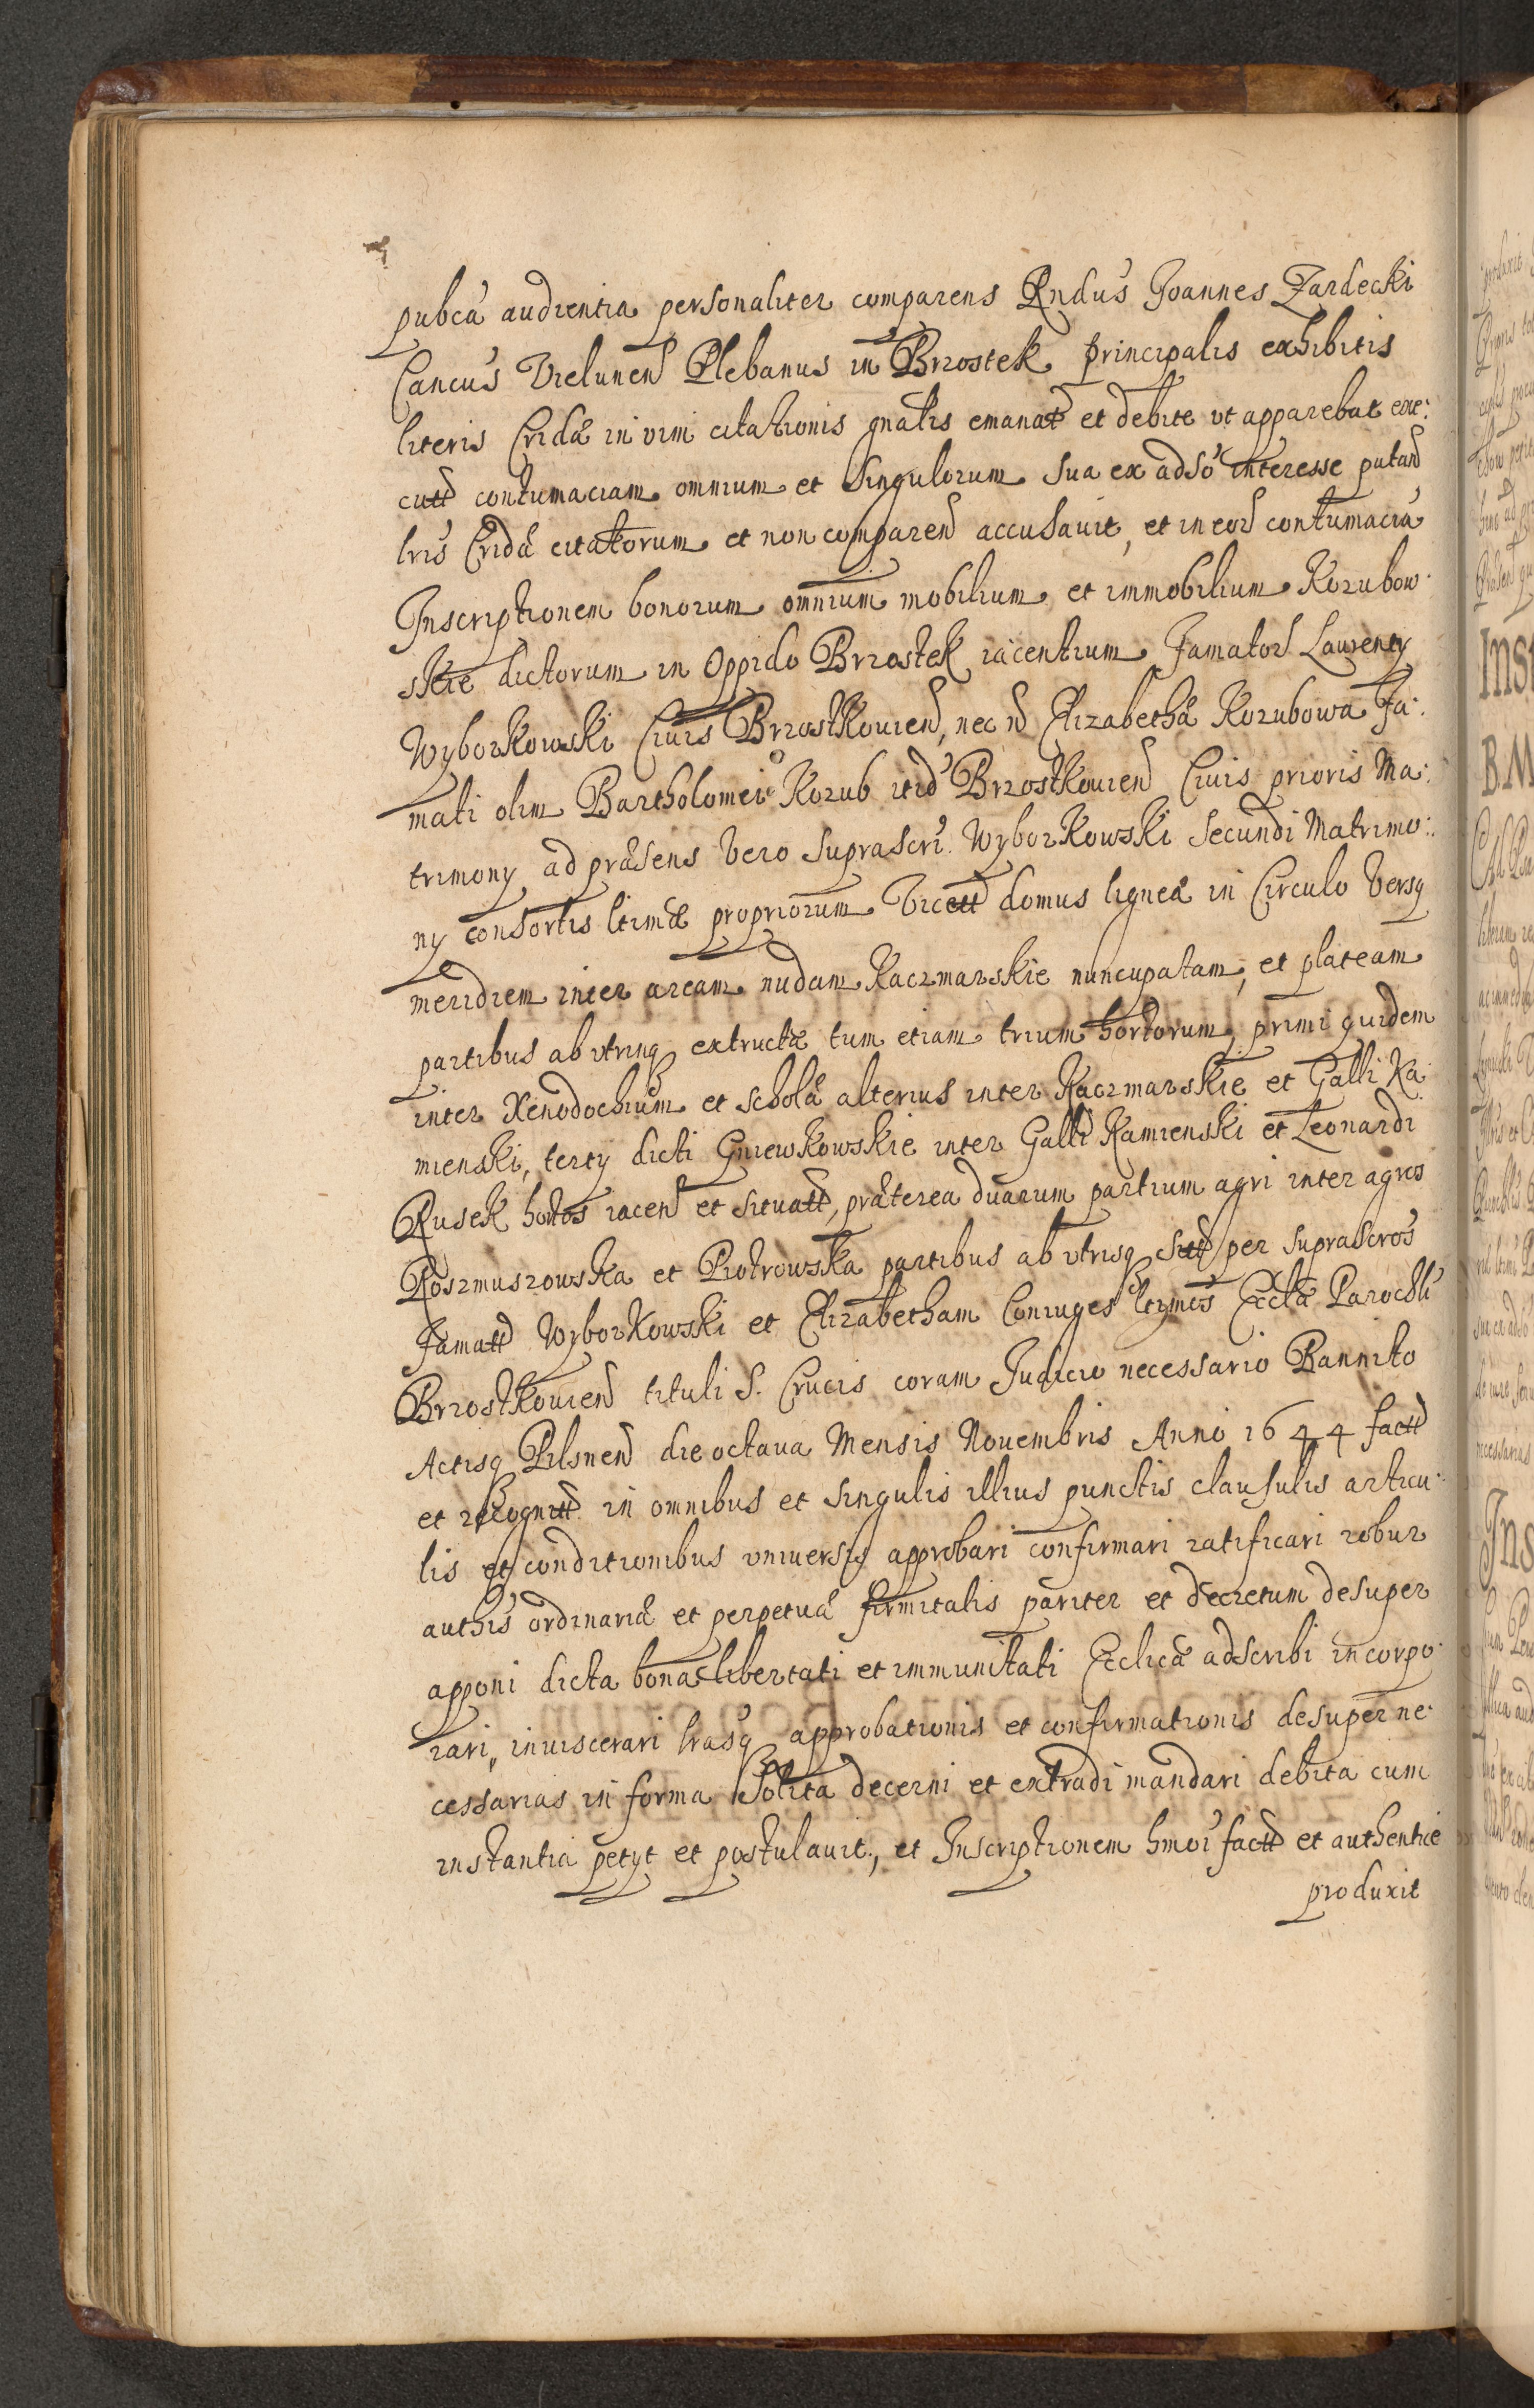 pubca audientia personaliter comparens Rndus Joannes Zardecki
Cancus Vielunen Plebanus in Brzostek principalis exhibitis
literis Cridæ in vim citationis gnalis emanat et debite vt apparebat exe:
cutt contumaciam omnium et Singulorum sua ex adso interesse putan
lris Cridæ citatorum et non comparen accusauit, et in eor contumaciā
Inscriptionem bonorum omnium mobilium et immobilium Kozubow:
skie dictorum in Oppido Brzostek iacentium Famator Laurenty
Wyborkowski Ciuis Brzostkouien, nec n Elizabethæ Kozubowa Fa:
mati olim Bartholomei Kozub itid Brzostkouien Ciuis prioris Ma:
trimony ad præsens vero suprascri Wyborkowski secundi Matrimo:
ny consortis ltimæ propriorum Vicett domus ligneæ in Circulo versq
meridiem inter aream nudam Kaczmarskie nuncupatam, et plateam
partibus ab vtrinq extructæ tum etiam trium hortorum, primi quidem
inter Xenodochium et scholā alterius inter Kaczmarskie et Galli Ka:
mienski, terty dicti Gniewkowskie inter Galli Kamienski et Leonardi
Rusek hortos iacen et situatt, præterea duarum partium agri inter agros
Roszmuszowska et Piotrowska partibus ab vtrisq sitt per suprascros
Famatt Wyborkowski et Elizabetham Coniuges ltymos Eccla Parochli
Brzostkouien tituli S. Crucis coram Judicio necessario Bannito
Actisq Pilsnen die octaua Mensis Nouembris Anno 1644 factt
et recognitt in omnibus et singulis illius punctis clausulis articu:
lis et conditionibus vniversis approbari confirmari ratificari robur
authis ordinariæ et perpetuæ firmitatis pariter et decretum desuper
apponi dicta bona libertati et immunitati Ecclicæ adscribi incorpo:
rari, inuiscerari lrasq approbationis et confirmationis desuper ne:
cessarias in forma solita decerni et extradi mandari debita cum
instantia petyt et postulauit, et Inscriptionem hmoi factt et authentice
produxit